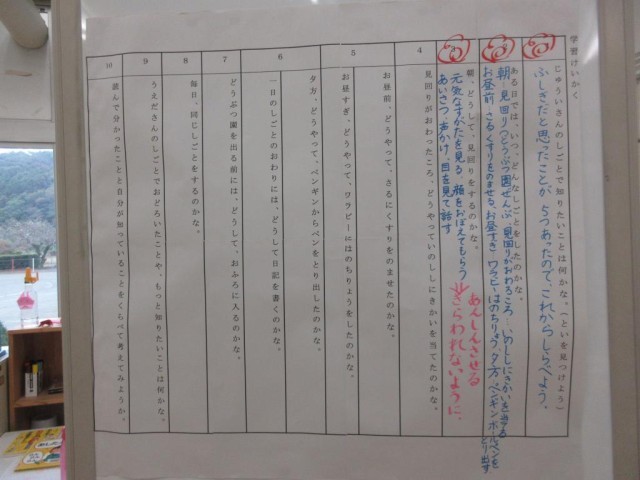 学習けいかく
じゅういさんのしごとで知りたいことは何かな。(といを見つけよう)
ふしぎだと思ったことが、らつあったので、これからしらべよう。
ある日では、いつ、どんなしごとをしたのかな。
朝、見回り(どうぶつ園ぜんぶ 見回りがおわるころ…いのししにきかいを当てる
お昼前、さるにくすりをのませる、お昼すぎ、ワラビーはのちりょう、夕方、ペンギン ボールペンをとり出す
朝、どうして、見回りをするのかな。
元気なすがたを見る 顔をおぼえてもらう
あいさつ、声かけ、目を見て話す
あんしんさせる
きらわれないように、
4 見回りがおわったころ、どうやっていのししにきかいを当てたのかな。
5 お昼前、どうやって、さるにくすりをのませたのかな。
お昼すぎ、どうやって、ワラビーにはのちりょうをしたのかな。
6 夕方、どうやって、ペンギンからペンをとり出したのかな。
一日のしごとのおわりには、どうして日記を書くのかな。
7 どうぶつ園を出る前には、どうして、おふろに入るのかな。
8 毎日、同じしごとをするのかな。
9 うえださんのしごとでおどろいたことや、もっと知りたいことは何かな。
10 読んで分かったことと自分が知っていることをくらべて考えてみようか。